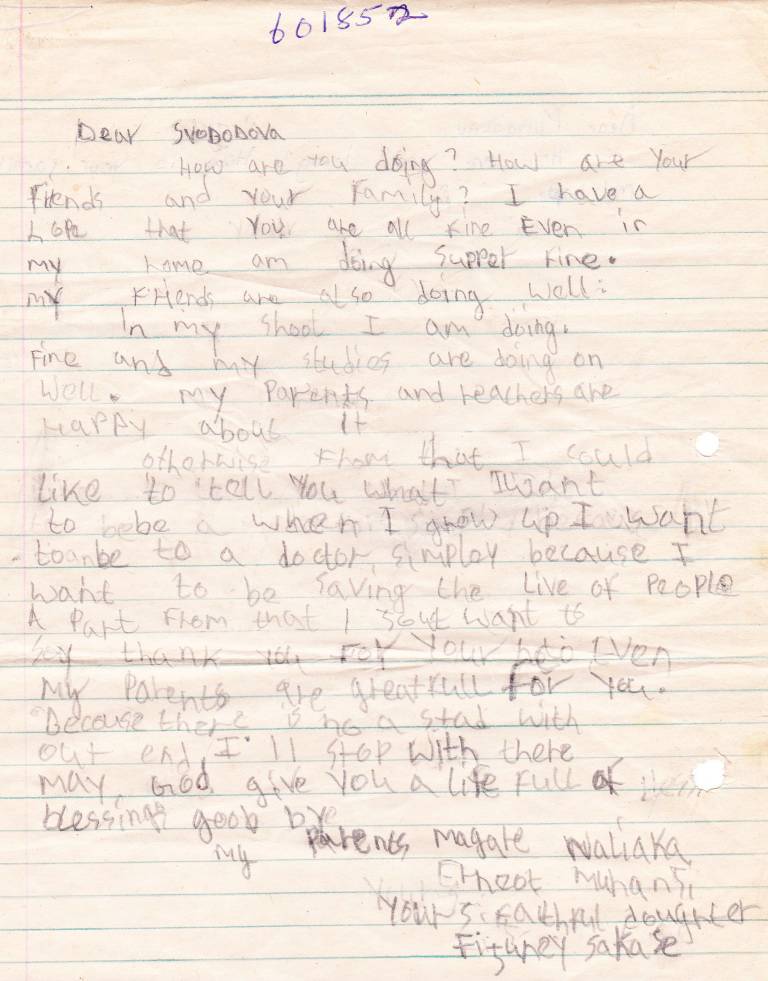 601852
Dear SVOBODOVA
How are you doing? How are Your
Fiends and Your Family? I have a
Lope that You are all Fine Even in
my home am doing supper Fine.
my Friends are also doing well:
In my shool I am doing.
Fine and my studies are doing on
Well. my Parents and teachers are
HaPPy about It
otherwise From that I could
Like to tell You what I want
to be a when I grow up I want
to be to a doctor, simploy because I
want to be saving the Live of PeoPle
A Part From that I want to
Say thank you For Your Even
my Parents are greatfull For You.
Because there is no a stad with
out end, I'll stop with there
may, God, give You a life Full of
blessings goob bye
my Parents magate Naliaka,
Ernest Muhani,
Yours Faithful doughter
Sakase